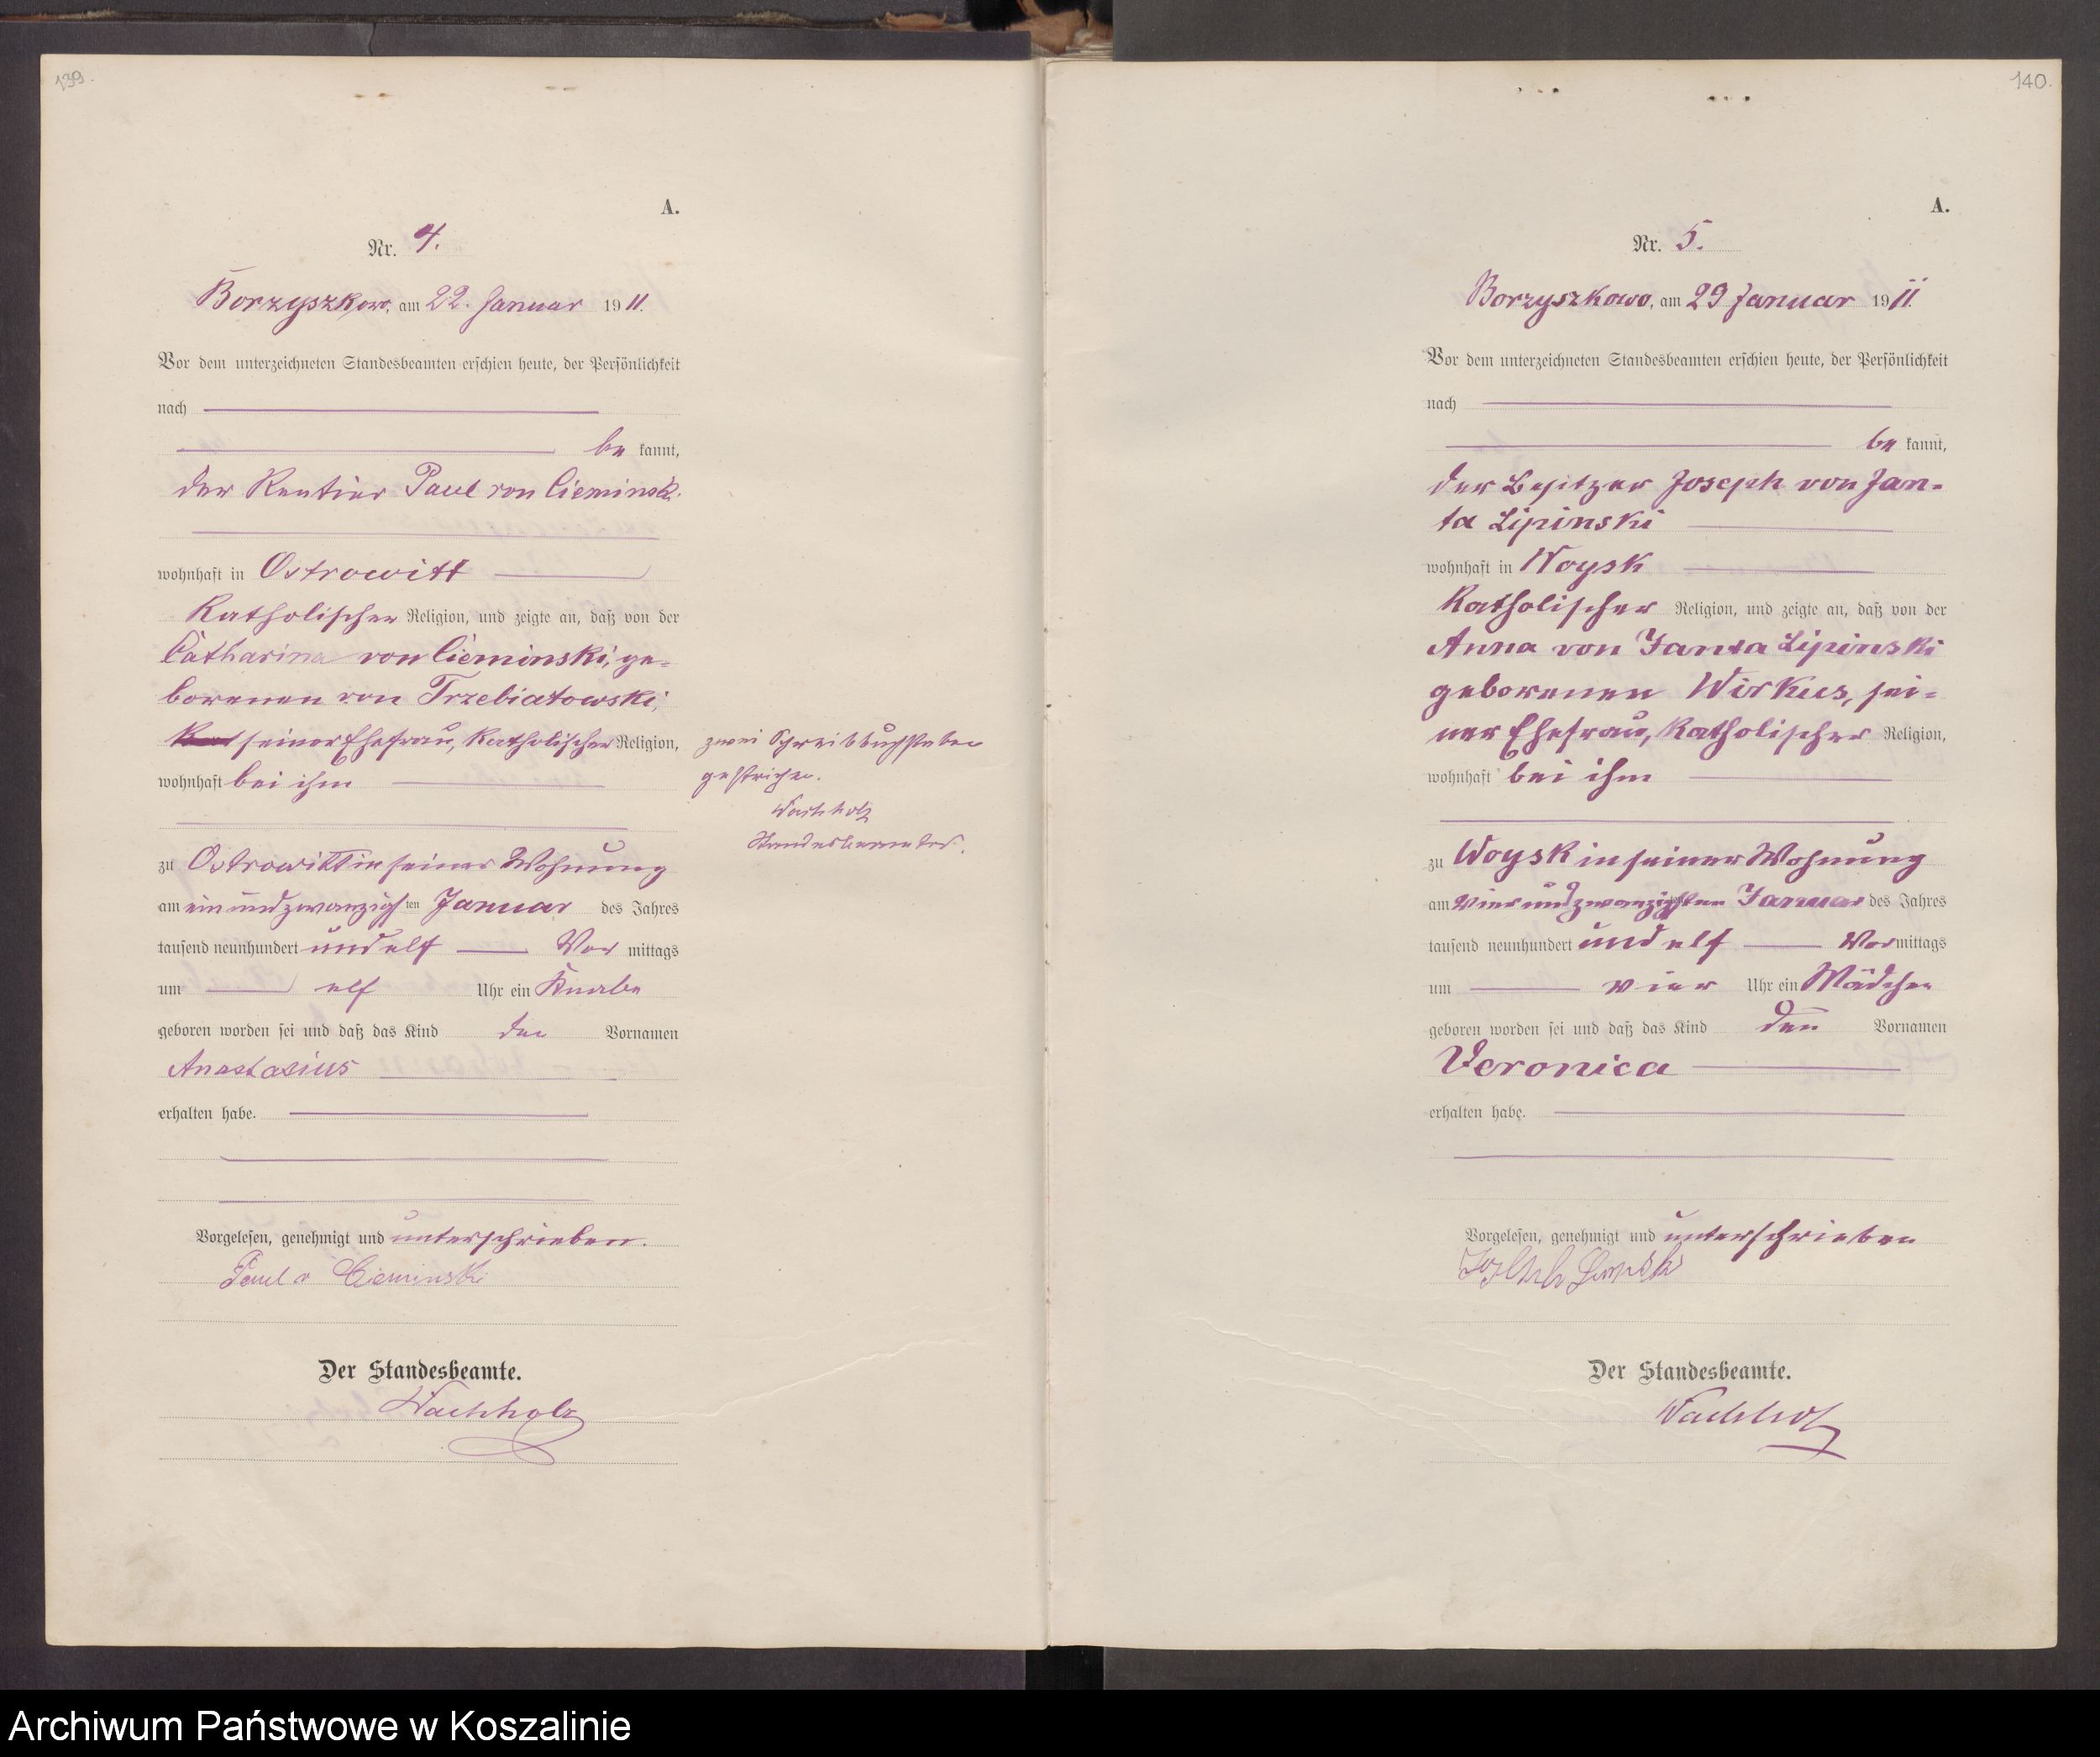 139.
A.
Nr. 4.
Borzyszkowo, am 22. Januar 1911.
Vor dem unterzeichneten Standesbeamten erschien heute, der Persönlichkeit
nach
be kannt,
der Rentier Paul von Cieminski
wohnhaft in Ostrowitt
katholischer Religion, und zeigte an, daß von der
Catharina von Cieminski, ge-
borenen von Trzebiatowski,
seiner Ehefrau, katholischer Religion,
wohnhaft bei ihm
zu Ostrowitt in seiner Wohnung
am ein und zwanzigsten Januar des Jahres
tausend neunhundert und elf Vor mittags
um elf Uhr ein Knabe
geboren worden sei und daß das Kind den Vornamen
Anastasius
erhalten habe.
Vorgelesen, genehmigt und unterschrieben.
Paul v Cieminski
Der Standesbeamte.
Wachholz
zwei Schreibbuchstaben
gestrichen.
Wachholz
Standesbeamter.
140.
A.
Nr. 5.
Borzyszkowo, am 29 Januar 1911.
Vor dem unterzeichneten Standesbeamten erschien heute, der Persönlichkeit
nach
be kannt,
der Besitzer Joseph von Jan-
ta Lipinski
wohnhaft in Woysk
katholischer Religion, und zeigte an, daß von der
Anna von Janta Lipinski
geborenen Wirkus, sei-
ner Ehefrau, katholischer Religion,
wohnhaft bei ihm
zu Woysk in seiner Wohnung
am vier und zwanzigsten Januar des Jahres
tausend neunhundert und elf Vor mittags
um vier Uhr ein Mädchen
geboren worden sei und daß das Kind den Vornamen
Veronica
erhalten habe.
Vorgelesen, genehmigt und unterschrieben
Der Standesbeamte.
Wachholz
Archiwum Państwowe w Koszalinie